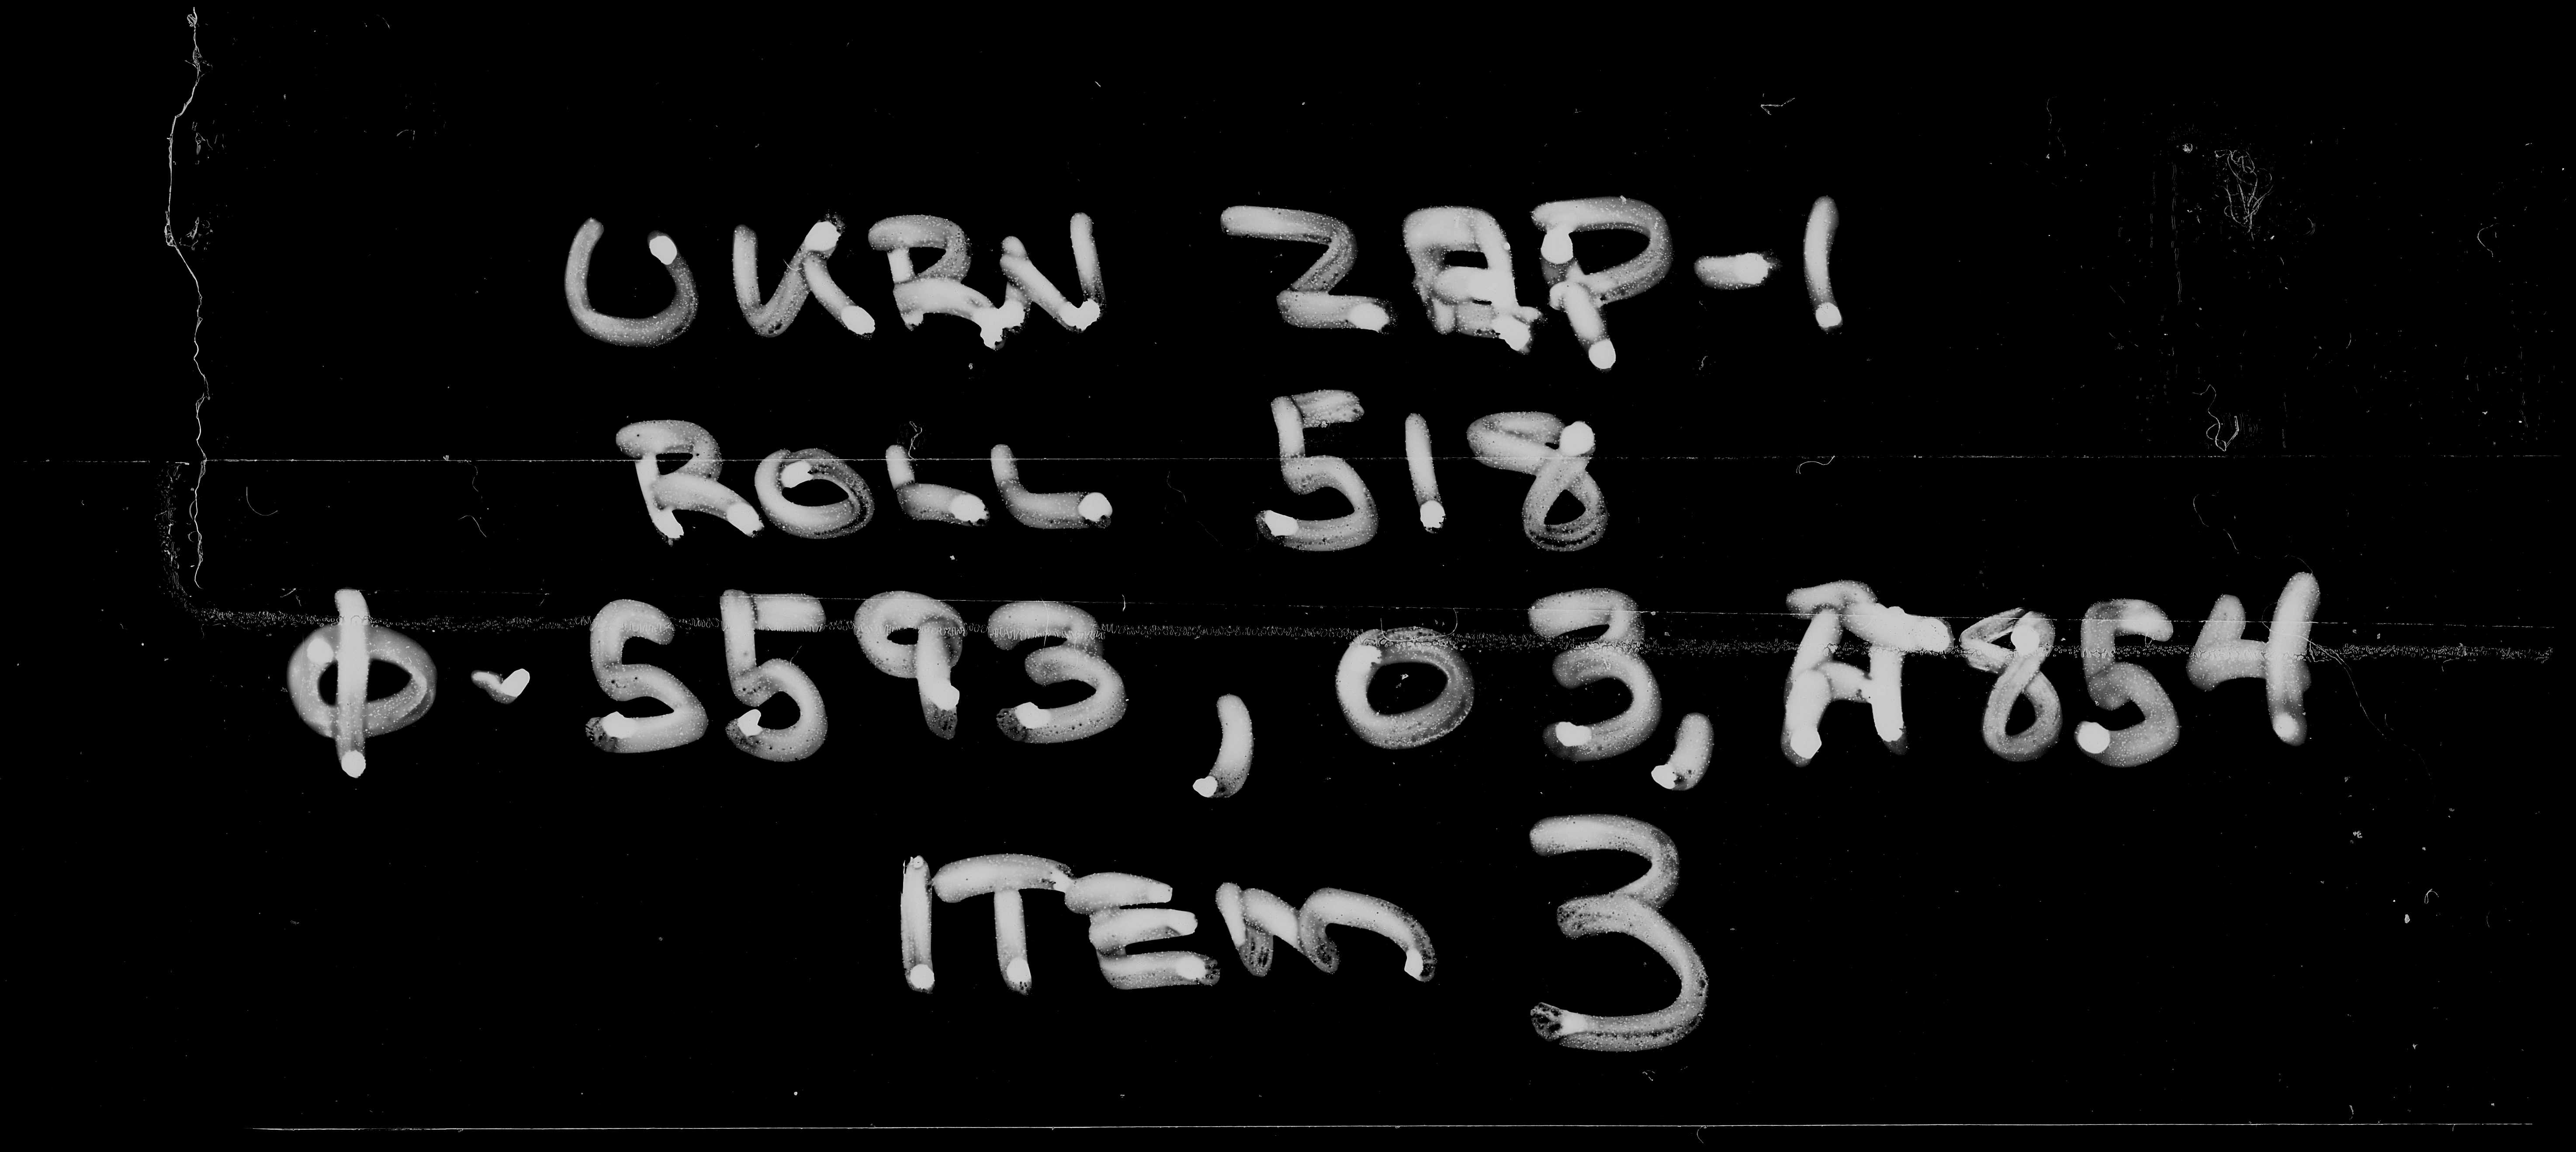 UKRN ZAP-1
ROLL 518
Ф-5593, 03, A854
ITEM 3